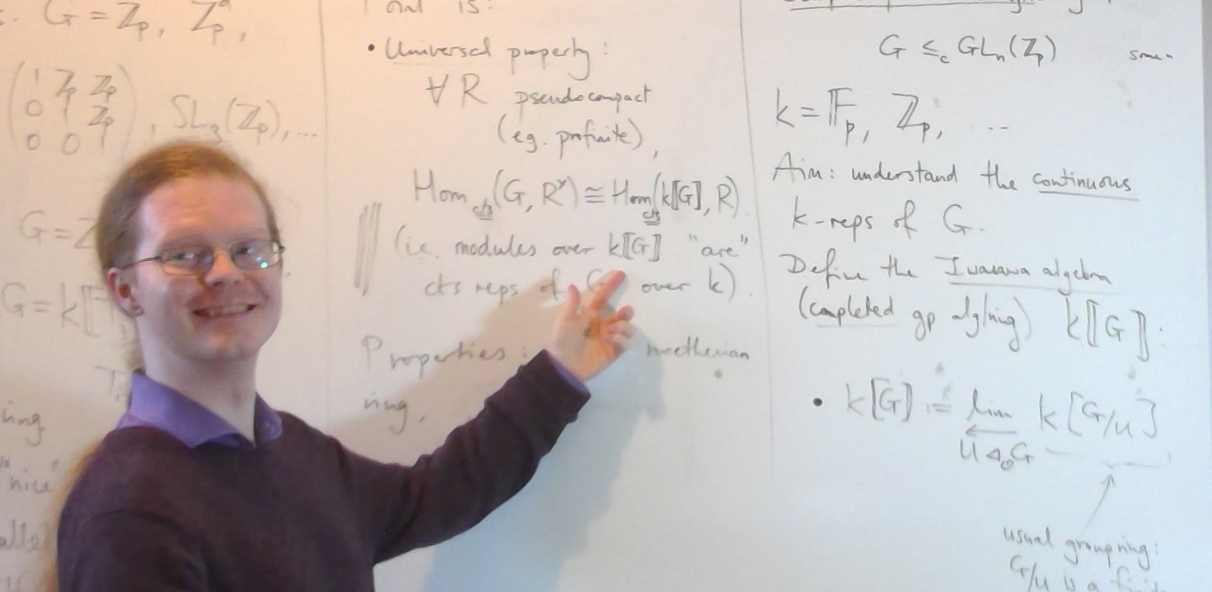 G = ℤp, ℤp^a,
(1 ℤp ℤp
0 1 ℤp
0 0 1), SL₃(ℤp), ...
G = ℤ
G = k[[
ring
"nice"
is:
• Universal property:
∀ R pseudocompact
(eg. profinite),
Hom_cts(G, R^×) ≅ Hom_cts(k[[G]], R).
(i.e. modules over k[[G]] "are"
cts reps of G over k).
Properties: noetherian
ring.
G ≤_c GL_n(ℤp)
k = 𝔽p, ℤp, ...
Aim: understand the continuous
k-reps of G.
Define the Iwasawa algebra
(completed gp alg/ring) k[[G]]:
• k[[G]] := lim k[G/U]
← U ⊲_o G
usual group ring:
G/U is a finite